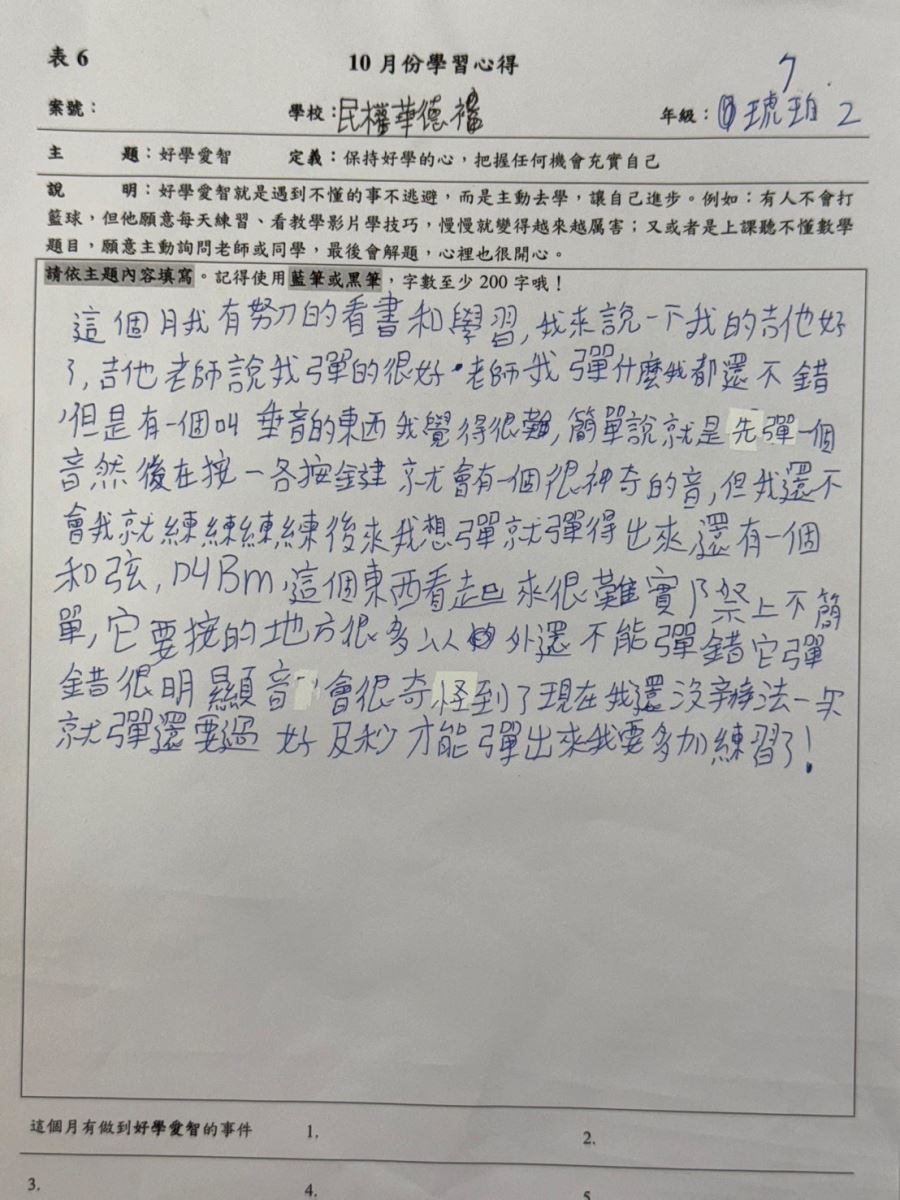 表 6
10 月份學習心得
案號： 學校：民權華德福 年級： 7 琥珀 2
主 題：好學愛智 定義：保持好學的心，把握任何機會充實自己
說 明：好學愛智就是遇到不懂的事不逃避，而是主動去學，讓自己進步。例如：有人不會打
籃球，但他願意每天練習、看教學影片學技巧，慢慢就變得越來越厲害；又或者是上課聽不懂數學
題目，願意主動詢問老師或同學，最後會解題，心裡也很開心。
請依主題內容填寫。記得使用藍筆或黑筆，字數至少 200 字哦！
這個月我有努力的看書和學習，我來說一下我的吉他好
了，吉他老師說我彈的很好。老師我彈什麼我都還不錯
，但是有一個叫垂音的東西我覺得很難，簡單說就是先彈一個
音然後在按一各按鍵就會有一個很神奇的音，但我還不
會我就練練練練後來我想彈就彈得出來還有一個
和弦，D4Bm，這個東西看起來很難實際上不簡
單，它要按的地方很多以外還不能彈錯它彈
錯很明顯音會很奇怪到了現在我還沒辦法一次
就彈還要過好及秒才能彈出來我要多加練習了！
這個月有做到好學愛智的事件 1. 2.
3. 4. 5.